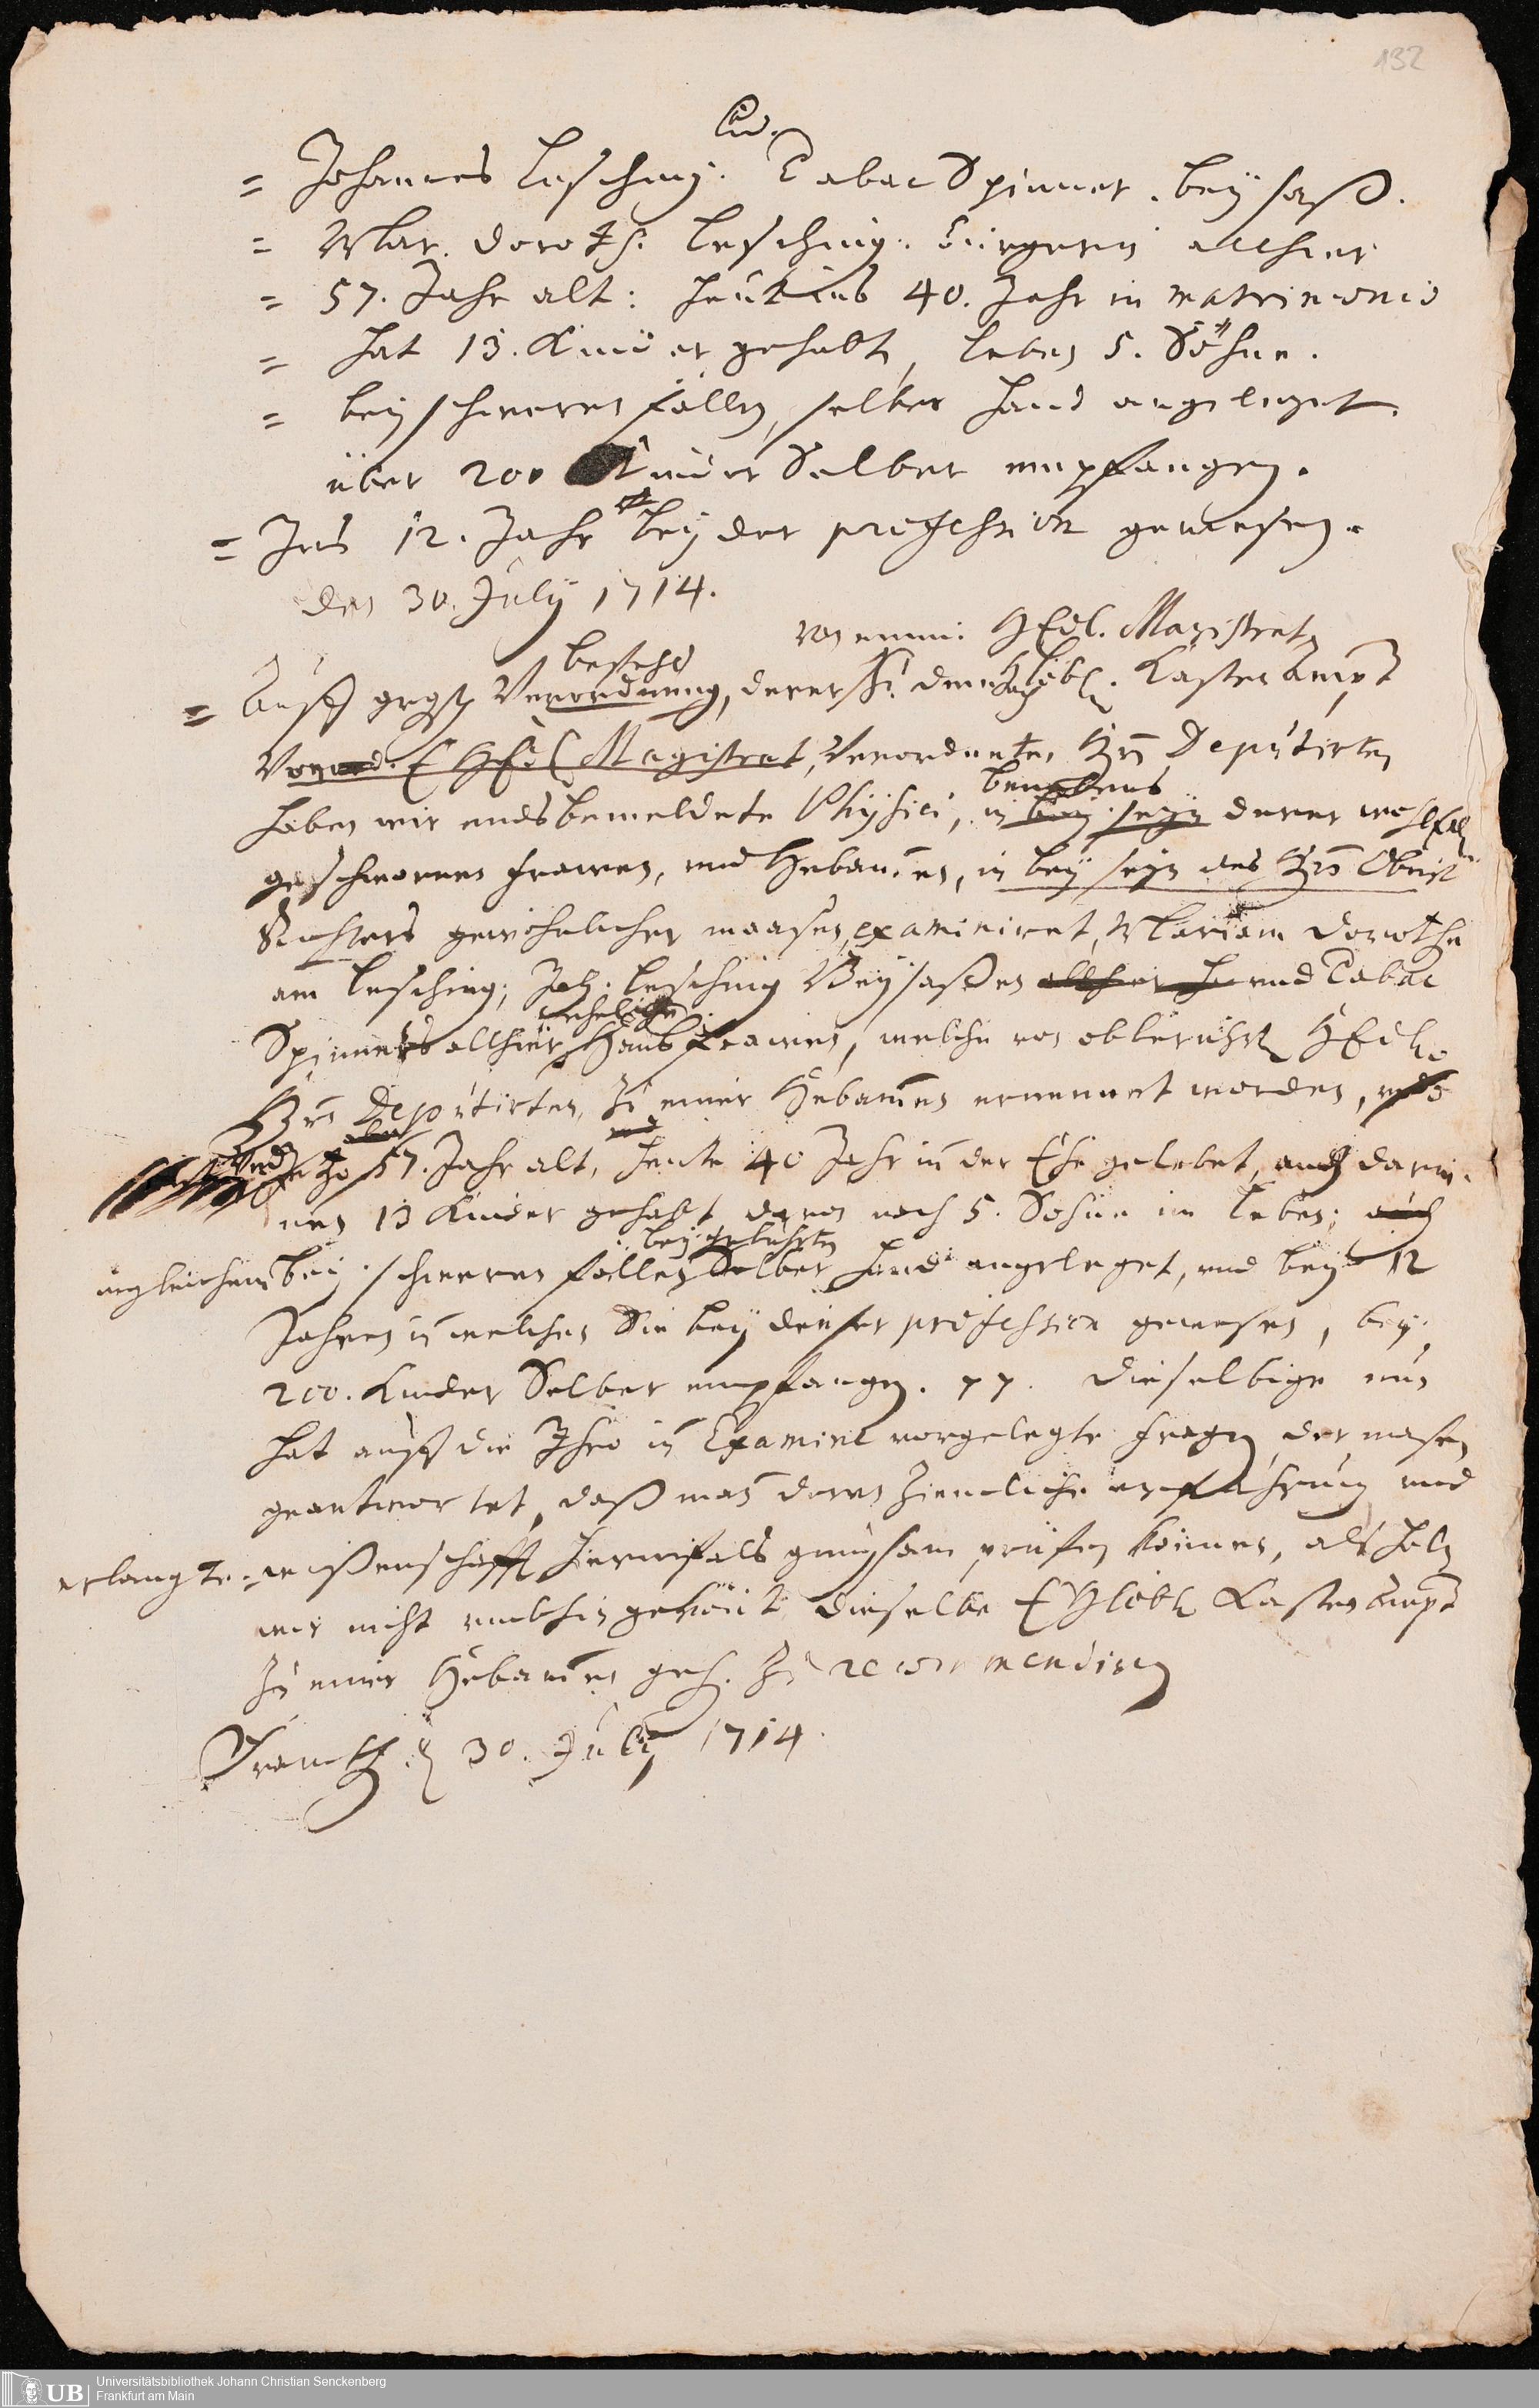 132
= Johannes Lesching. Tabac Spinner. beysaß.
= Mar. Doroth. Lesching: bürgerin allhier
= 57. Jahr alt: heut ins 40. Jahr in matrimonio
= hat 13. Kinder gehabt, leben 5. Söhne.
= bey schweren fällen, selber hand angeleget.
über 200 Kinder Selber empfangen.
= Ins 12. Jahr bey der profession gewesen.
den 30. July 1714.
von einem HEdl. Magistrat
befehl
= Auff Verordnung, derer zu dem Löbl. Kasten Ampt
Von E HEdl Magistrat, Verordneten Hrn Deputirten
benebens
haben wir endsbemeldete Physici, in bey seyn derer
geschwornen frawen, und Hebammen, in bey seyn des Hrn Obrist
Richters gewöhnlicher maasen, examiniret, Mariam Dorothe
am Lesching, Joh. Lesching Beysaßen allhier und Tabac
eheliche
Spinners allhier, Hausfrawen, welche von obberührt HEdl.
Hrn Deputirten, zu einer Hebammen ernennet worden,
und
57. Jahr alt, heute 40 Jahr in der Ehe gelebet, auch darin-
nen 13 Kinder gehabt davon noch 5. Söhne im leben; auch
bey gebuhrten
ingleichem bey schweren fällen Selber hand angeleget, und bey 12
Jahren in welchen Sie bey dieser profession gewesen, bey
200. Kinder Selber empfangen. Dieselbige nun
hat auff die Ihro in Examine vorgelegte fragen der masen
geantwortet, daß man deren ziemliche erfahrung und
erlangte wißenschafft hierinfals gnugsam prüfen können, als haben
wir nicht umbhin gekönt dieselbe E Löbl Kasten Ampt
zu einer Hebammen geh. zu recommendiren
Franckf. d 30. July 1714.
UB
Universitätsbibliothek Johann Christian Senckenberg
Frankfurt am Main